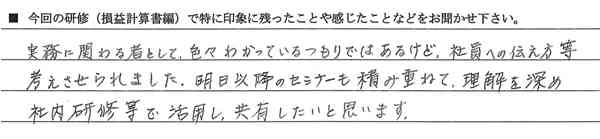 ■ 今回の研修（損益計算書編）で特に印象に残ったことや感じたことなどをお聞かせ下さい。
実務に関わる者として、色々わかっているつもりではあるけど、社員への伝え方等
考えさせられました。明日以降のセミナーも積み重ねて、理解を深め
社内研修等で活用し、共有したいと思います。